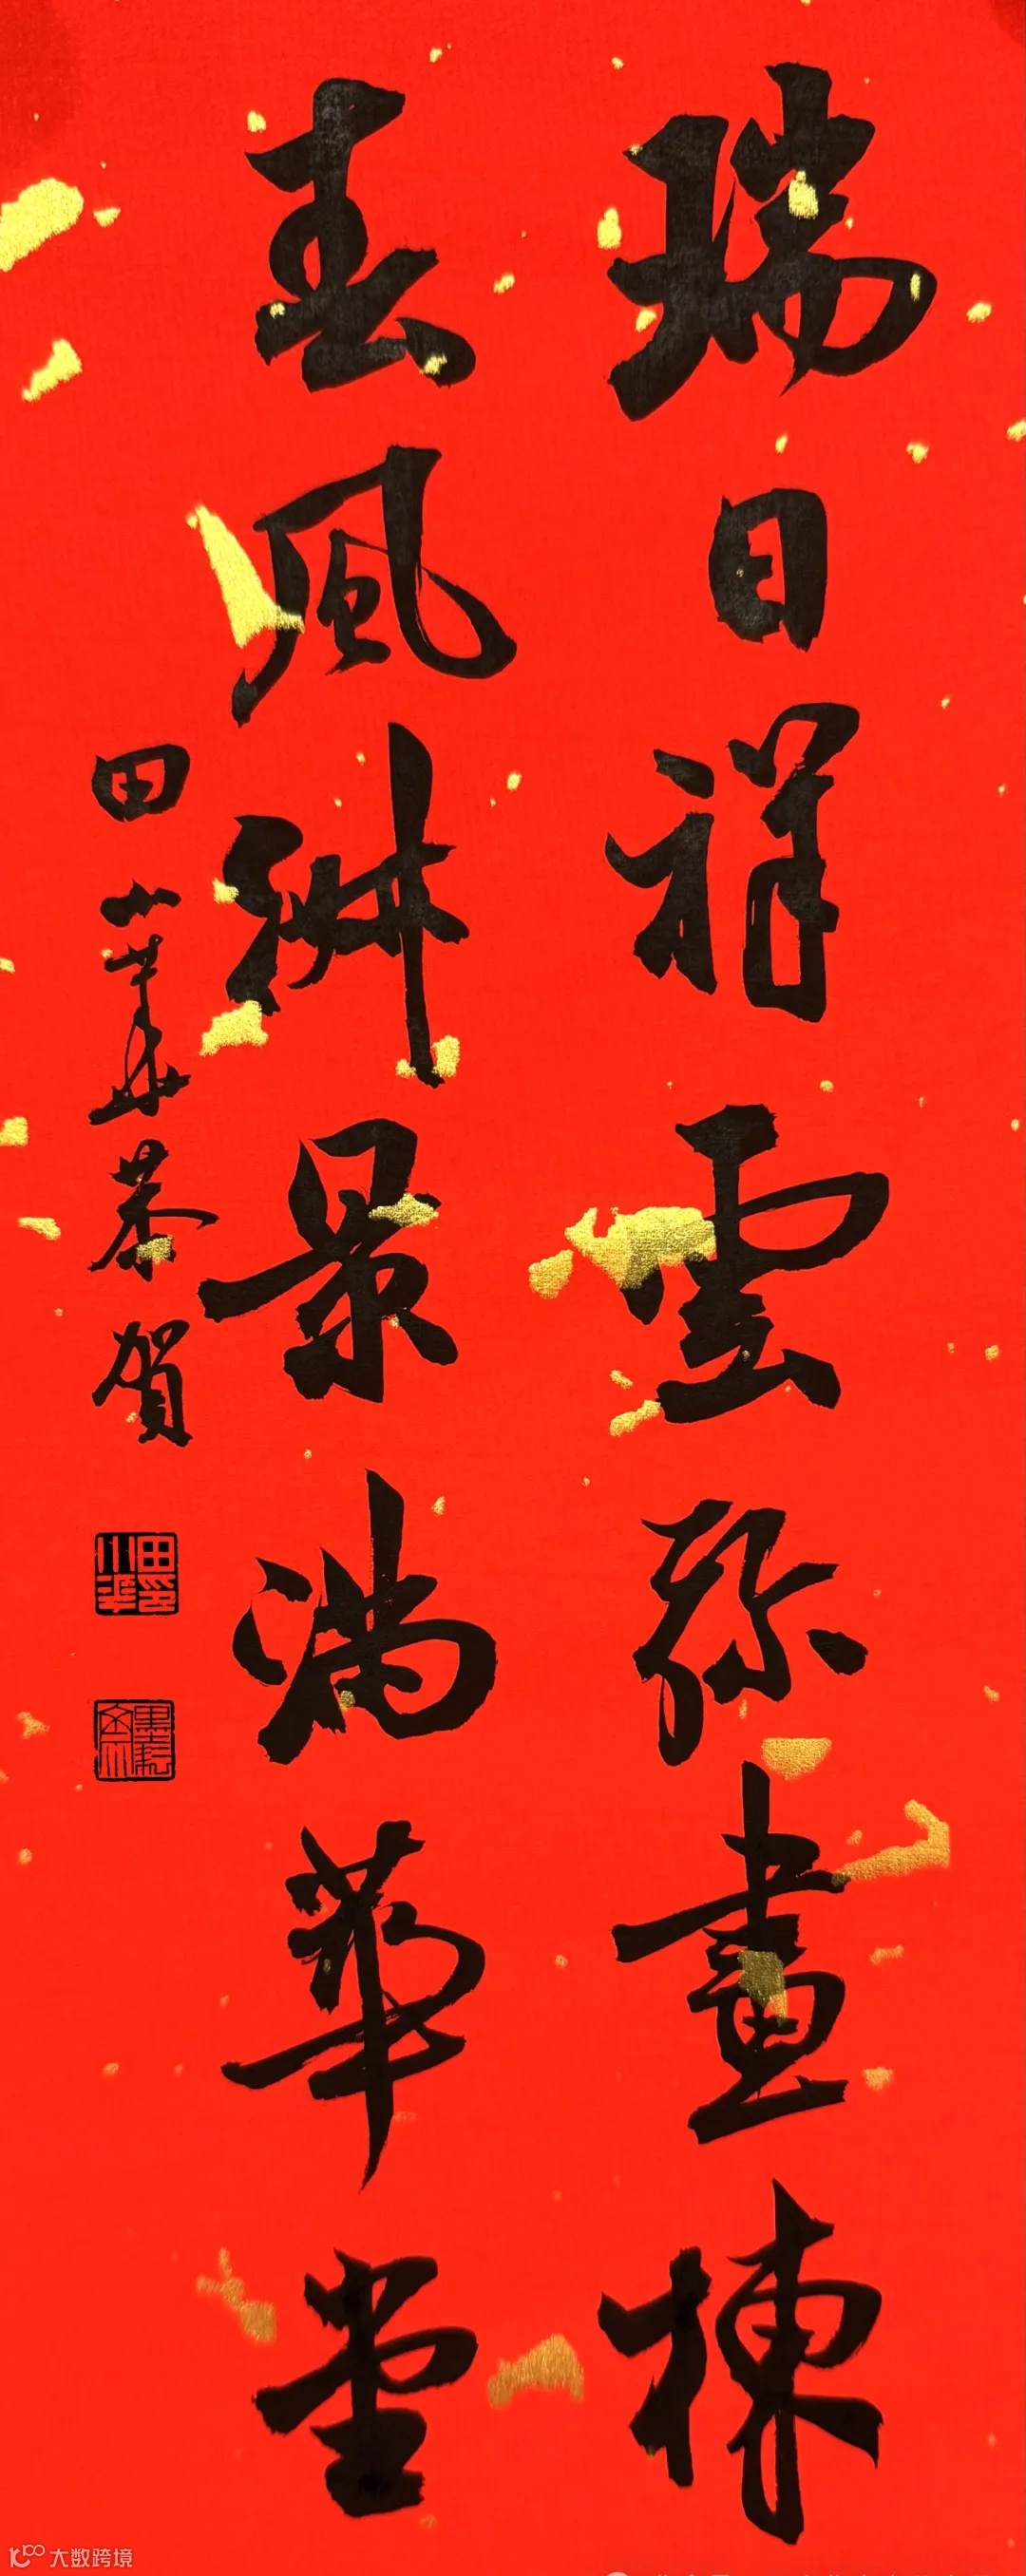 瑞日祥雲弥畫棟
春風景满華堂
田小華恭賀
田小華印
大数跨境